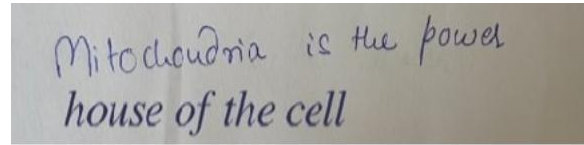 Mitochondria is the power
house of the cell